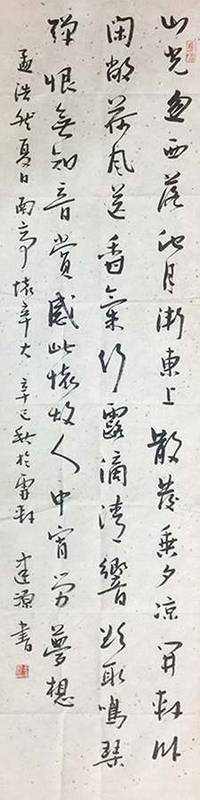 山光忽西落池月漸東上散髮乘夕涼開軒臥
閑敞荷風送香氣竹露滴清響欲取鳴琴
彈恨無知音賞感此懷故人中宵勞夢想
孟浩然夏日南亭懷辛大 辛巳秋於雪軒 源書